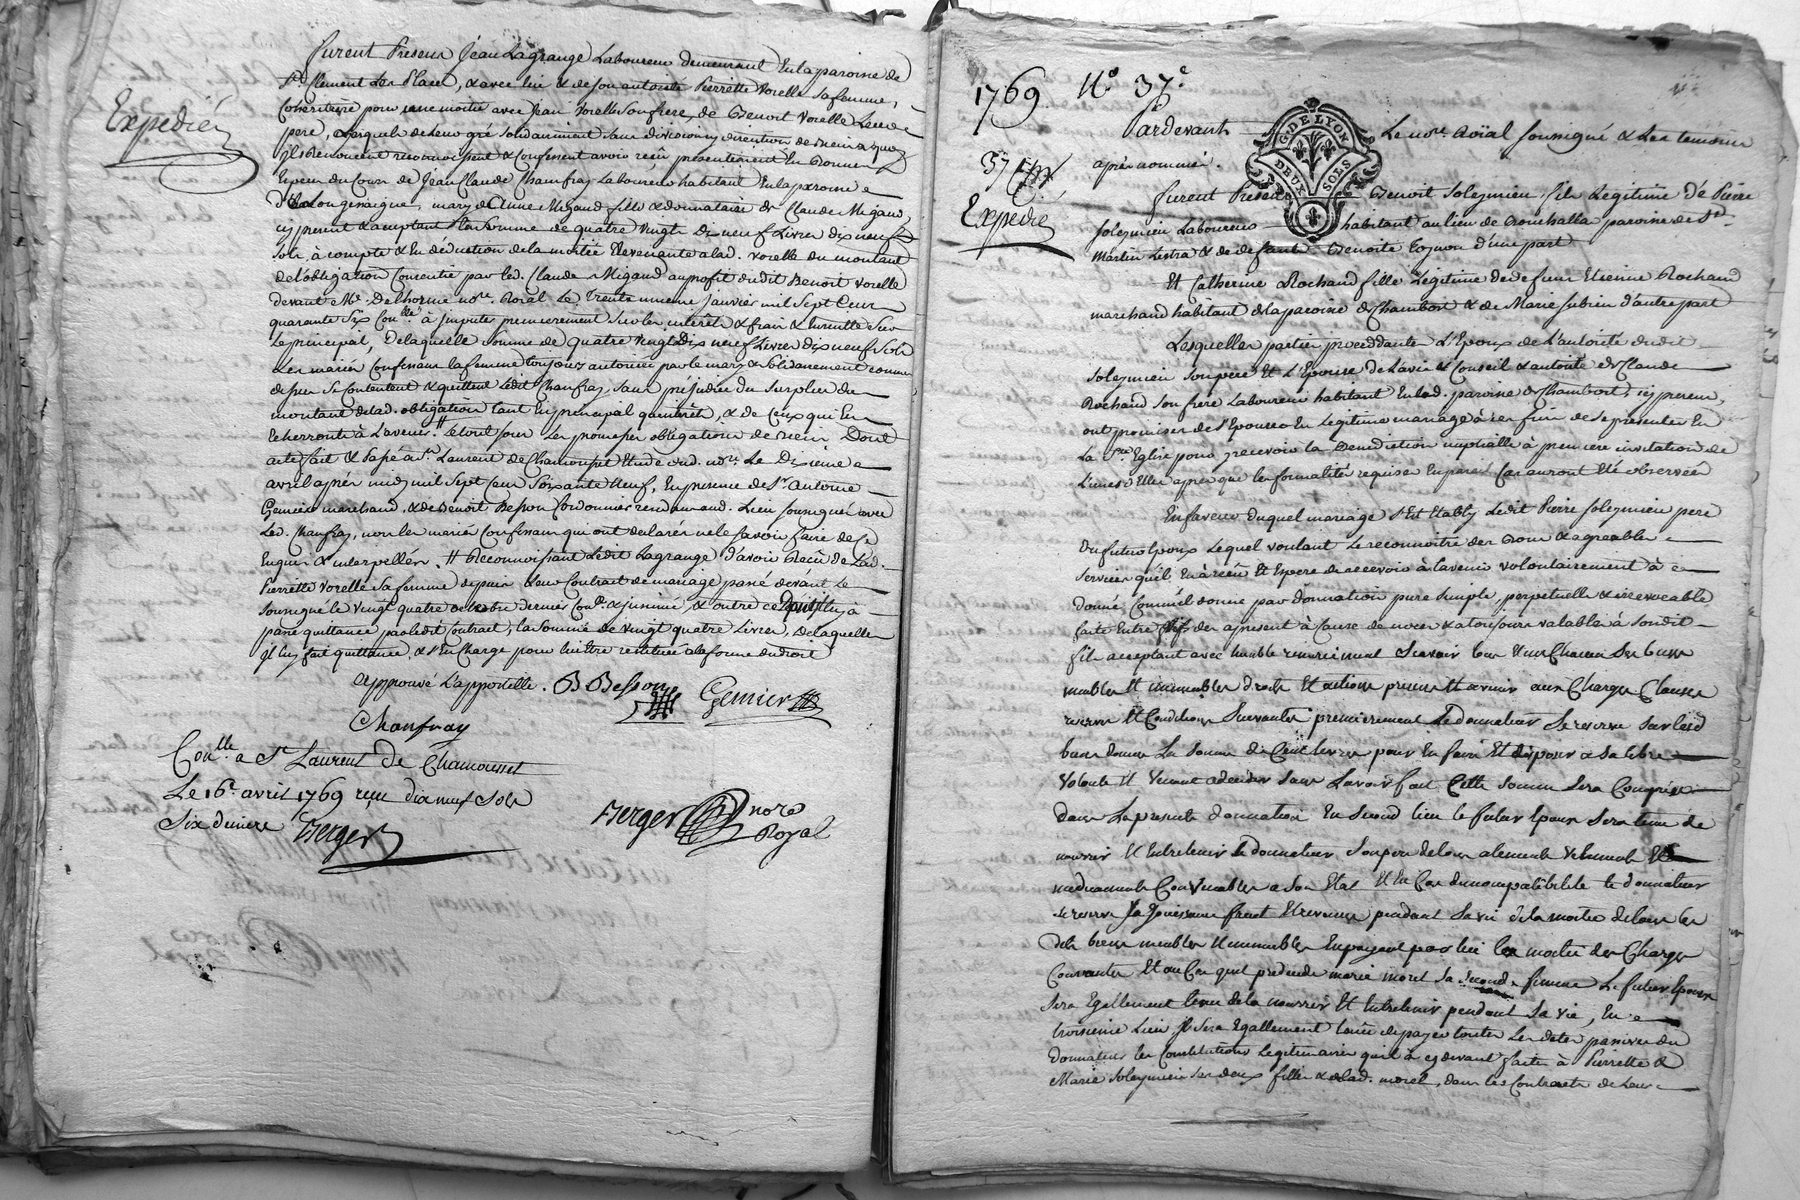 Expedié
furent Presens Jean Lagrange Laboureur demeurant En la paroisse de
St. Clement Les Places, & avec lui & de son autorité Pierrette Vorelle sa femme,
Cohéritiere pour une moitié avec Jean Vorelle son frere, de Benoit Vorelle Leur
pere, Lesquels de Leur gré solidairement sans division ny
Ils Renoncent reconnoissent & Confessent avoir reçu présentement En
de Jean Claude Chanfray Laboureur habitant En la paroisse
de Longessaigne, mary de Anne Migaud fille & donnataire de Claude Migaud,
icy present & acceptant La somme de quatre vingt Dix neuf Livres dix neuf
sols, à compte & En déduction de la moitié Revenante a lad. Vorelle du montant
de l'obligation Consentie par led. Claude Migaud au profit dudit Benoit Vorelle
devant Me. Delhorme nore. Roïal Le Trente unieme Janvier mil sept Cent
quarante Six Conllé à Imputer premierement sur les interêts & frais & Ensuitte sur
Le principal, De laquelle somme de quatre vingt Dix neuf Livres dix neuf sols
Les mariés Confessans la femme toujours autorisée par le mary & solidairement comme
dessus se Contentent & quittent Ledit Chanfray, sans préjudice du surplus du
montant de lad. obligation tant En principal qu'interêt, & de Ceux qui En
Echerront à L'avenir. # Le tout sous Les promesses obligations de biens Dont
acte fait & passé à St. Laurent de Chamousset Etude dud. nore. Le Dixieme
avril après midy mil sept Cent soixante Neuf, En presence de Sr. antoine
Gemier marchand, & de Benoit Besson Cordonnier residans aud. Lieu soussignés avec
Led. Chanfray, non les mariés Confessans qui ont declarés ne le savoir faire de ce
Enquis & interpellés. # Reconnoissant Ledit Lagrange d'avoir Reçu de Lad.
Pierrette Vorelle sa femme depuis Leur Contrat de mariage passé devant Le
soussigné le vingt quatre octobre dernier Conlé. & insinué, & outre ce Dont il luy a
passé quittance par ledit Contrat, la somme de vingt quatre Livres, De laquelle
Il luy fait quittance, & s'En Charge pour lui Etre restituée a la forme du droit
approuvé L'apportille. B Besson Gemier
Chanfray
Conllé a St Laurent De Chamousset
Le 16e. avril 1769 reçu dix neuf sols
Six deniers Berger
Berger nore
Royal
1769 No. 37e.
37
Expedié
G. DE LYON
DEUX SOLS
Pardevant Le nore. Roïal soussigné & Les temoins
après nommés.
furent Presens Benoit Soleymieu fils Legitime de Pierre
Soleymieu Laboureur habitant au lieu de Crouchalla paroisse de St.
Martin Lestra & de defunte Benoite Cognon d'une part
Et Catherine Rochand fille Legitime de defunt Etienne Rochand
marchand habitant de la paroisse de Chambost & de Marie Subrin d'autre part
Lesquelles parties procedantes L'Epoux de L'autorité dudit
Soleymieu son pere Et L'Epouse de L'avis & Conseil & autorité de Claude
Rochand son frere Laboureur habitant En lad. paroisse de Chambost, icy present,
ont promises de s'Epouser En Legitime mariage à ces fins de se presenter En
La Ste. Eglise pour y recevoir la Benediction nuptialle à premiere invitation de
L'une d'Elles après que les formalités requises En pareil Cas auront Eté observées
En faveur Duquel mariage s'Est Etably Ledit Pierre Soleymieu pere
du futur Epoux Lequel voulant Le reconnoitre des Bons & agreables
services qu'il En à reçu Et Espere de recevoir à l'avenir volontairement à
donné Comme il donne par donnation pure simple, perpetuelle & irrevocable
faite Entre vifs des apresent à Cause de noces & a toujours valable à sondit
fils acceptant avec humble remerciement Scavoir tous & un Chacun Ses biens
meubles Et immeubles Droits Et actions presens Et avenir aux Charges Clauses
reserve Et Conditions Suivantes premierement Le donnateur Se reserve Sur lesd
biens donnés La Somme de Cent livres pour En faire Et disposer a Sa libre
Volonté Et Venant a deceder Sans L'avoir fait Cette Somme Sera Comprise
Dans La presente donnation En Second lieu Le futur Epoux Sera tenu de
nourrir Et Entretenir Le Donnateur Son pere de tous aliments Vetements Et
medicaments Convenables a Son Etat Et En Cas d'incompatibilité le donnateur
Se reserve La Jouissance fruits Et revenus pendant Sa vie de la moitié de tous les
dits biens meubles Et immeubles En payant par lui La moitié des Charges
Courantes Et au Cas quil predecede marie morel Sa Seconde femme Le futur Epoux
Sera Egallement tenu de la nourrir Et Entretenir pendant Sa vie, En
troisieme Lieu Il Sera Egallement tenu de payer toutes Les dettes passives du
Donnateur les Constitutions Legitimaires quil à cy devant faites à Pierrette &
Marie Soleymieu Ses deux filles & de lad. morel, dans les Contracts de Leur